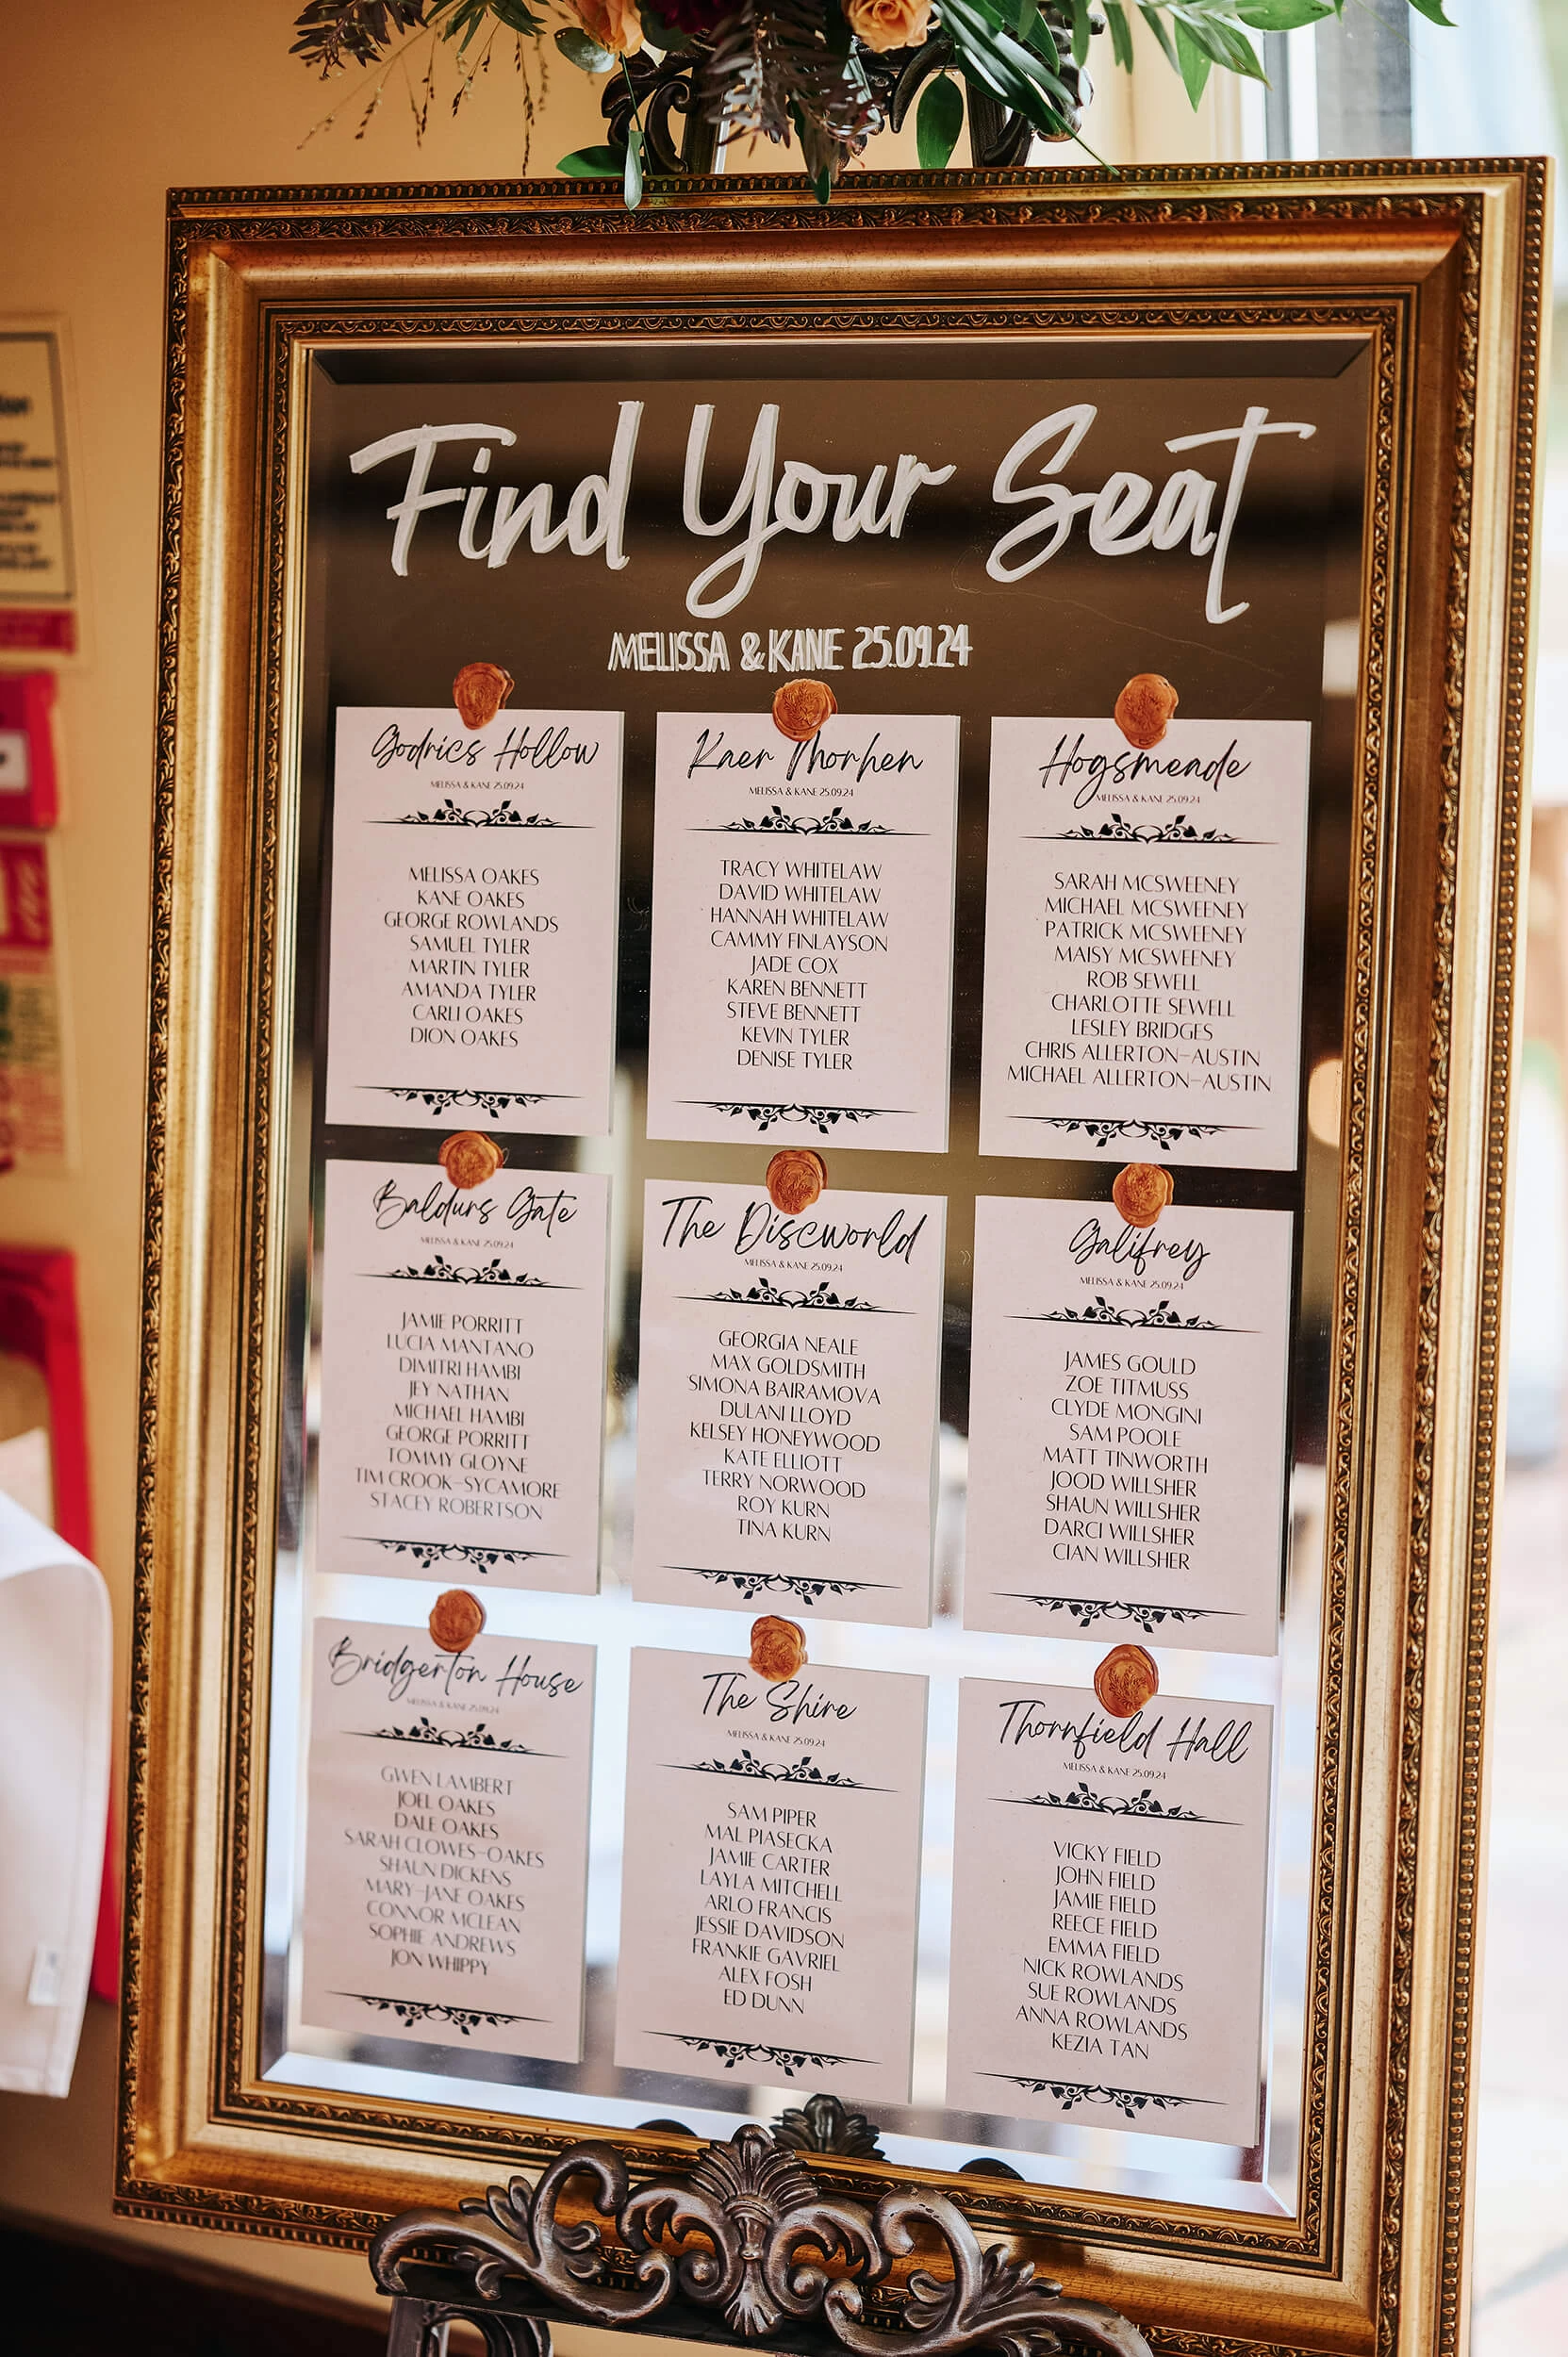 Find Your Seat
MELISSA & KANE 25.09.24
Godrics Hollow
MELISSA & KANE 25.09.24
MELISSA OAKES
KANE OAKES
GEORGE ROWLANDS
SAMUEL TYLER
MARTIN TYLER
AMANDA TYLER
CARLI OAKES
DION OAKES
Kaer Morhen
MELISSA & KANE 25.09.24
TRACY WHITELAW
DAVID WHITELAW
HANNAH WHITELAW
CAMMY FINLAYSON
JADE COX
KAREN BENNETT
STEVE BENNETT
KEVIN TYLER
DENISE TYLER
Hogsmeade
MELISSA & KANE 25.09.24
SARAH MCSWEENEY
MICHAEL MCSWEENEY
PATRICK MCSWEENEY
MAISY MCSWEENEY
ROB SEWELL
CHARLOTTE SEWELL
LESLEY BRIDGES
CHRIS ALLERTON-AUSTIN
MICHAEL ALLERTON-AUSTIN
Baldurs Gate
MELISSA & KANE 25.09.24
JAMIE PORRITT
LUCIA MANTANO
DIMITRI HAMBI
JEY NATHAN
MICHAEL HAMBI
GEORGE PORRITT
TOMMY GLOYNE
TIM CROOK-SYCAMORE
STACEY ROBERTSON
The Discworld
MELISSA & KANE 25.09.24
GEORGIA NEALE
MAX GOLDSMITH
SIMONA BAIRAMOVA
DULANI LLOYD
KELSEY HONEYWOOD
KATE ELLIOTT
TERRY NORWOOD
ROY KURN
TINA KURN
Galifrey
MELISSA & KANE 25.09.24
JAMES GOULD
ZOE TITMUSS
CLYDE MONGINI
SAM POOLE
MATT TINWORTH
JOOD WILLSHER
SHAUN WILLSHER
DARCI WILLSHER
CIAN WILLSHER
Bridgerton House
MELISSA & KANE 25.09.24
GWEN LAMBERT
JOEL OAKES
DALE OAKES
SARAH CLOWES-OAKES
SHAUN DICKENS
MARY-JANE OAKES
CONNOR MCLEAN
SOPHIE ANDREWS
JON WHIPPY
The Shire
MELISSA & KANE 25.09.24
SAM PIPER
MAL PIASECKA
JAMIE CARTER
LAYLA MITCHELL
ARLO FRANCIS
JESSIE DAVIDSON
FRANKIE GAVRIEL
ALEX FOSH
ED DUNN
Thornfield Hall
MELISSA & KANE 25.09.24
VICKY FIELD
JOHN FIELD
JAMIE FIELD
REECE FIELD
EMMA FIELD
NICK ROWLANDS
SUE ROWLANDS
ANNA ROWLANDS
KEZIA TAN